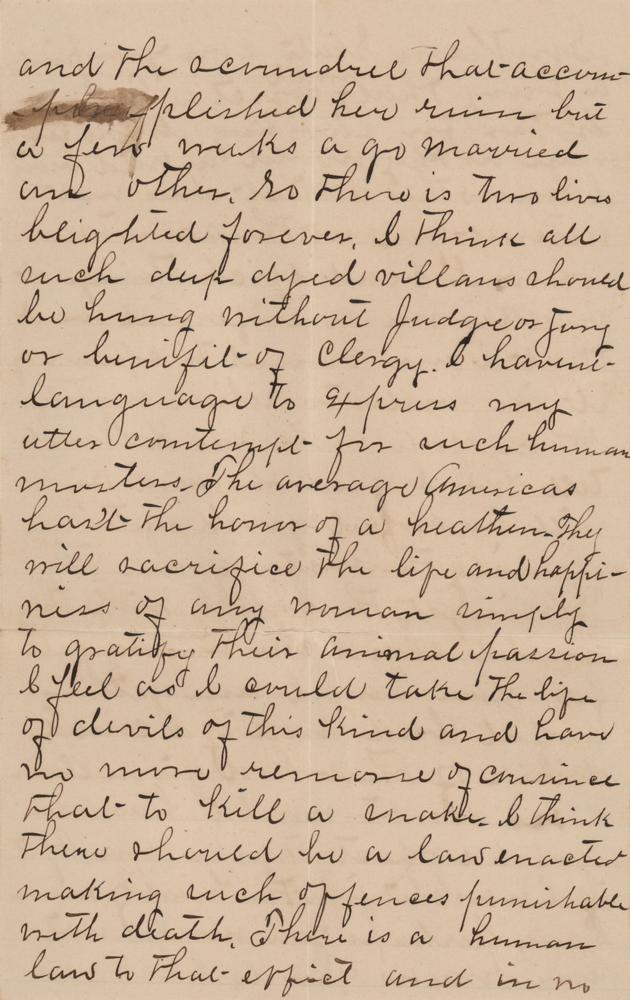 and the scoundrel that accom-
plished her ruin but
a few weeks a go married
an other. So there is two lives
blighted forever. I think all
such deep dyed villans should
be hung without Judge or Jury
or benifit of Clergy. I havent
language to express my
utter comtempt for such human
monsters. The average Americas
hast the honor of a heathen. They
will sacrifice the life and happi-
ness of any woman simply
to gratify their animal passion
I feel as I could take the life
of devils of this kind and have
no more remorse of consince
that to kill a snake. I think
there should be a law enacted
making such offences punishable
with death. There is a human
law to that effict and in no